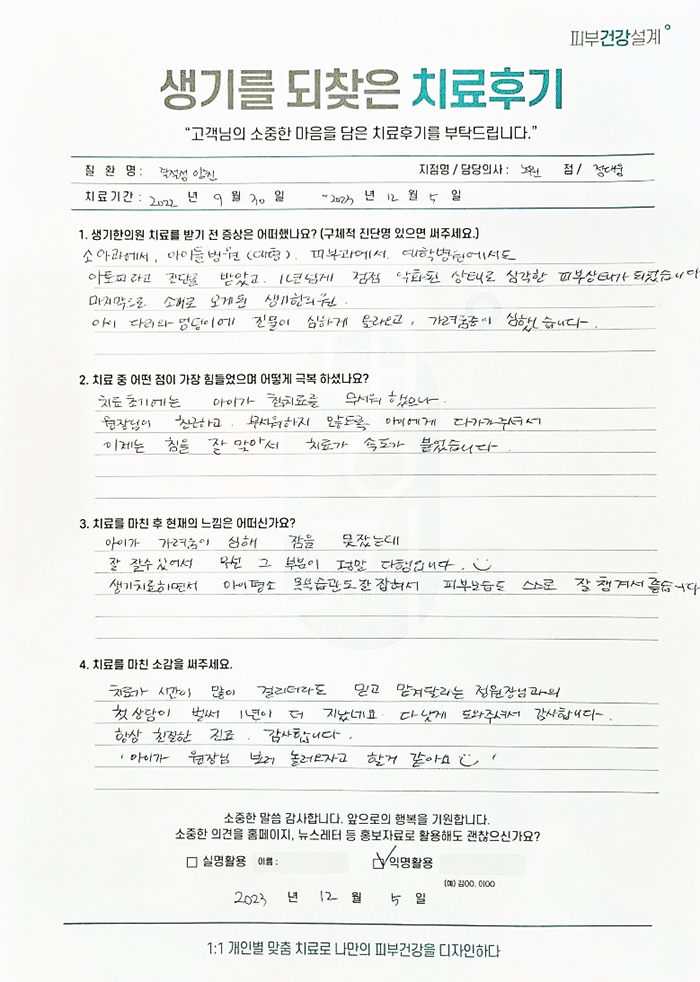 피부건강설계
생기를 되찾은 치료후기
“고객님의 소중한 마음을 담은 치료후기를 부탁드립니다.”
질 환 명 : 만진
지점명 / 담당의사 : 노원 점 / 정대웅
치료기간 : 2022 년 9 월 30 일 ~2023 년 12 월 5 일
1. 생기한의원 치료를 받기 전 증상은 어떠했나요? (구체적 진단명 있으면 써주세요.)
소아과에서, 아이들병원(대형). 피부과에서. 대학병원에서도
아토피라고 진단을 받았고. 1년넘게 점점 악화된 상태로 심각한 피부상태가 되었습니다
마지막으로 소개로 오게된 생기한의원.
아이 다리와 엉덩이에 진물이 심하게 올라오고, 가려움증이 심했습니다.
2. 치료 중 어떤 점이 가장 힘들었으며 어떻게 극복 하셨나요?
치료 초기에는 아이가 침치료를 무서워 했으나.
원장님이 친근하고. 무서워하지 않도록 아이에게 다가가주셔서
이제는 침을 잘 맞아서 치료가 속도가 붙었습니다.
3. 치료를 마친 후 현재의 느낌은 어떠신가요?
아이가 가려움이 심해 잠을 못잤는데
잘 잘수있어서 우선 그 부분이 정말 다행입니다.
생기치료하면서 아이평소 목욕습관도 잘 잡혀서 피부보습도 스스로 잘 챙겨서 좋습니다
4. 치료를 마친 소감을 써주세요.
치료가 시간이 많이 걸리더라도 믿고 맡겨달라는 정원장님과의
첫 상담이 벌써 1년이 더 지났네요. 다 낫게 도와주셔서 감사합니다.
항상 친절한 진료. 감사합니다.
'아이가 원장님 보러 놀러오자고 할거 같아요 '
소중한 말씀 감사합니다. 앞으로의 행복을 기원합니다.
소중한 의견을 홈페이지, 뉴스레터 등 홍보자료로 활용해도 괜찮으신가요?
실명활용 이름 : 익명활용
(예) 김00, 이00
2023 년 12 월 5 일
1:1 개인별 맞춤 치료로 나만의 피부건강을 디자인하다